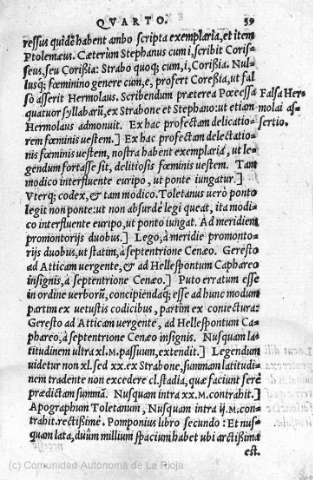 QVARTO. 59
ressus quidē habent ambo scripta exemplaria, et item
Ptolemæus. Cæterùm Stephanus cum i, scribit Coris-
seus, seu Corißia: Strabo quoq; cum, i, Corißia. Nul-
lusq; fœminino genere cum, e, profert Coreßia, ut fal
sò asserit Hermolaus. Scribendum præterea Poeessa Falsa Her
quatuor syllabarū, ex Strabone et Stephano: ut etiam molai as-
Hermolaus admonuit. Ex hac profectam delicatio- sertio.
rem fœminis uestem.] Ex hac profectam delectatio-
nis fœminis uestem, nostra habent exemplaria, ut le-
gendum fortasse sit, delitiosis fœminis uestem. Tam
modico interfluente euripo, ut ponte iungatur.]
Vterq; codex, & tam modico. Toletanus uerò ponto
legit non ponte: ut non absurdè legi queat, ita modi-
co interfluente euripo, ut ponto iungat. Ad meridiem
promontorijs duobus.] Lego, à meridie promonto-
rijs duobus, ut statim, à septentrione Cenæo. Geresto
ad Atticam uergente, & ad Hellespontum Caphareo
insignis, à septentrione Cenæo.] Puto erratum esse
in ordine uerborū, concipiendāq; esse ad hunc modum
partim ex uetustis codicibus, partim ex coniectura:
Geresto ad Atticam uergente, ad Hellespontum Ca-
phareo, à septentrione Cenæo insignis. Nusquam la-
titudinem ultra xl. M. passuum, extendit.] Legendum
uidetur non xl. sed xx. ex Strabone, summam latitudi-
nem tradente non excedere cl. stadia, quæ faciunt serè
prædictam summā. Nusquam intra xx. M. contrahit.]
Apographum Toletanum, Nusquam intra ij. M. con-
trahit. rectißimè. Pomponius libro secundo: Et nus-
quam lata, duûm millium spacium habet ubi arctißima
est.
(c) Comunidad Autónoma de La Rioja